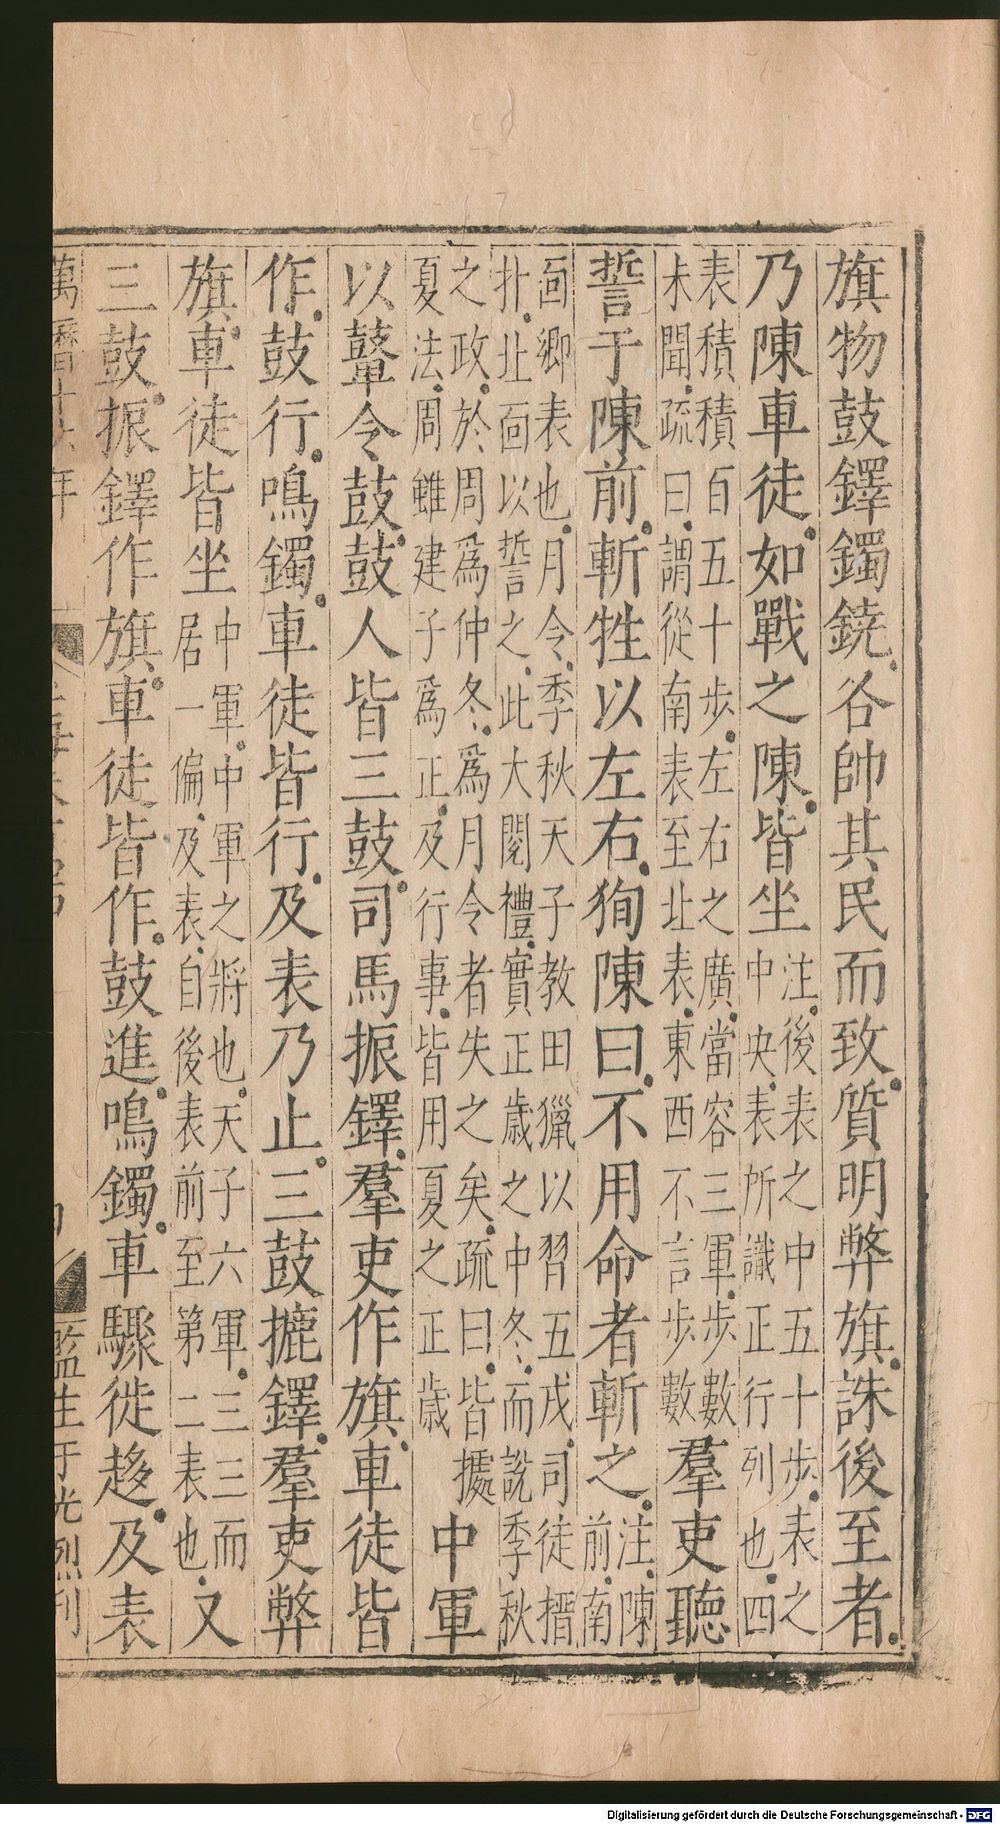 旗物鼓鐸鐲鐃各帥其民而致質明弊旗誅後至者
乃陳車徒如戰之陳皆坐注後表之中五十步表之
中央表所識正行列也四
表積積百五十步左右之廣當容三軍步數
未聞疏曰謂從南表至北表東西不言步數羣吏聽
誓于陳前斬牲以左右狥陳曰不用命者斬之注陳
前南
面鄉表也月令季秋天子教田獵以習五戎司徒搢
扑北面以誓之此大閱禮實正歲之中冬而說季秋
之政於周爲仲冬爲月令者失之矣疏曰皆據
夏法周雖建子爲正及行事皆用夏之正歲中軍
以鼙令鼓鼓人皆三鼓司馬振鐸羣吏作旗車徒皆
作鼓行鳴鐲車徒皆行及表乃止三鼓摝鐸羣吏弊
旗車徒皆坐中軍中軍之將也天子六軍三三而
居一偏及表自後表前至第二表也又
三鼓振鐸作旗車徒皆作鼓進鳴鐲車驟徒趨及表
萬曆十六年
監生于光烈刊
Digitalisierung gefördert durch die Deutsche Forschungsgemeinschaft - DFG